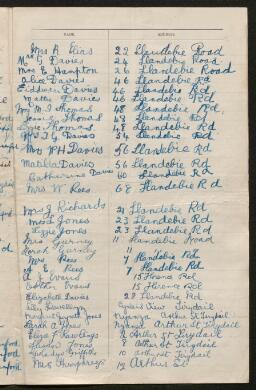 NAME. ADDRESS.
Mrs A Rees 22 Llandebie Road
Mrs G Davies 24 Llandebie Road
Mrs E Hampton 26 Llandebie Road
Alice Davies 46 Llandebie Rd
Eddwin Davies 46 Llandebie Rd
Davies 46 Llandebie Rd
Mrs M J Thomas 48 Llandebie Rd
Thomas 48 Llandebie Rd
Thomas 48 Llandebie Rd
Davies Llandebie Rd
Mrs W H Davies 56 Llandebie Rd
Matilda Davies 56 Llandebie Rd
Catherine Davies 60 Llandebie Rd
Mrs W Rees 68 Llandebie Rd
Mrs J Richards 21 Llandebie Rd
Mrs Jones 23 Llandebie Rd
Lizzie Jones 23 Llandebie Rd
Mrs Gurney 11 Llandebie Road
Sarah Gurney 11
Mrs Rees 7 Llandebie Rd
Rees 7 Llandebie Rd
Evans 15 Florence Rd
Esther Evans 15 Florence Rd
Elizabeth Davies 28 Llandebie Rd
Lily Llewellyn View Tirydail
Margaret Jones Arthur St Tirydail
Sarah A Rees Arthur St Tirydail
Eliza J Rawlings 6 Arthur St Tirydail
Jones 8 Arthur St Tirydail
Gladys Griffiths 10 Arthur St Tirydail
Mrs Humphreys 12 Arthur St